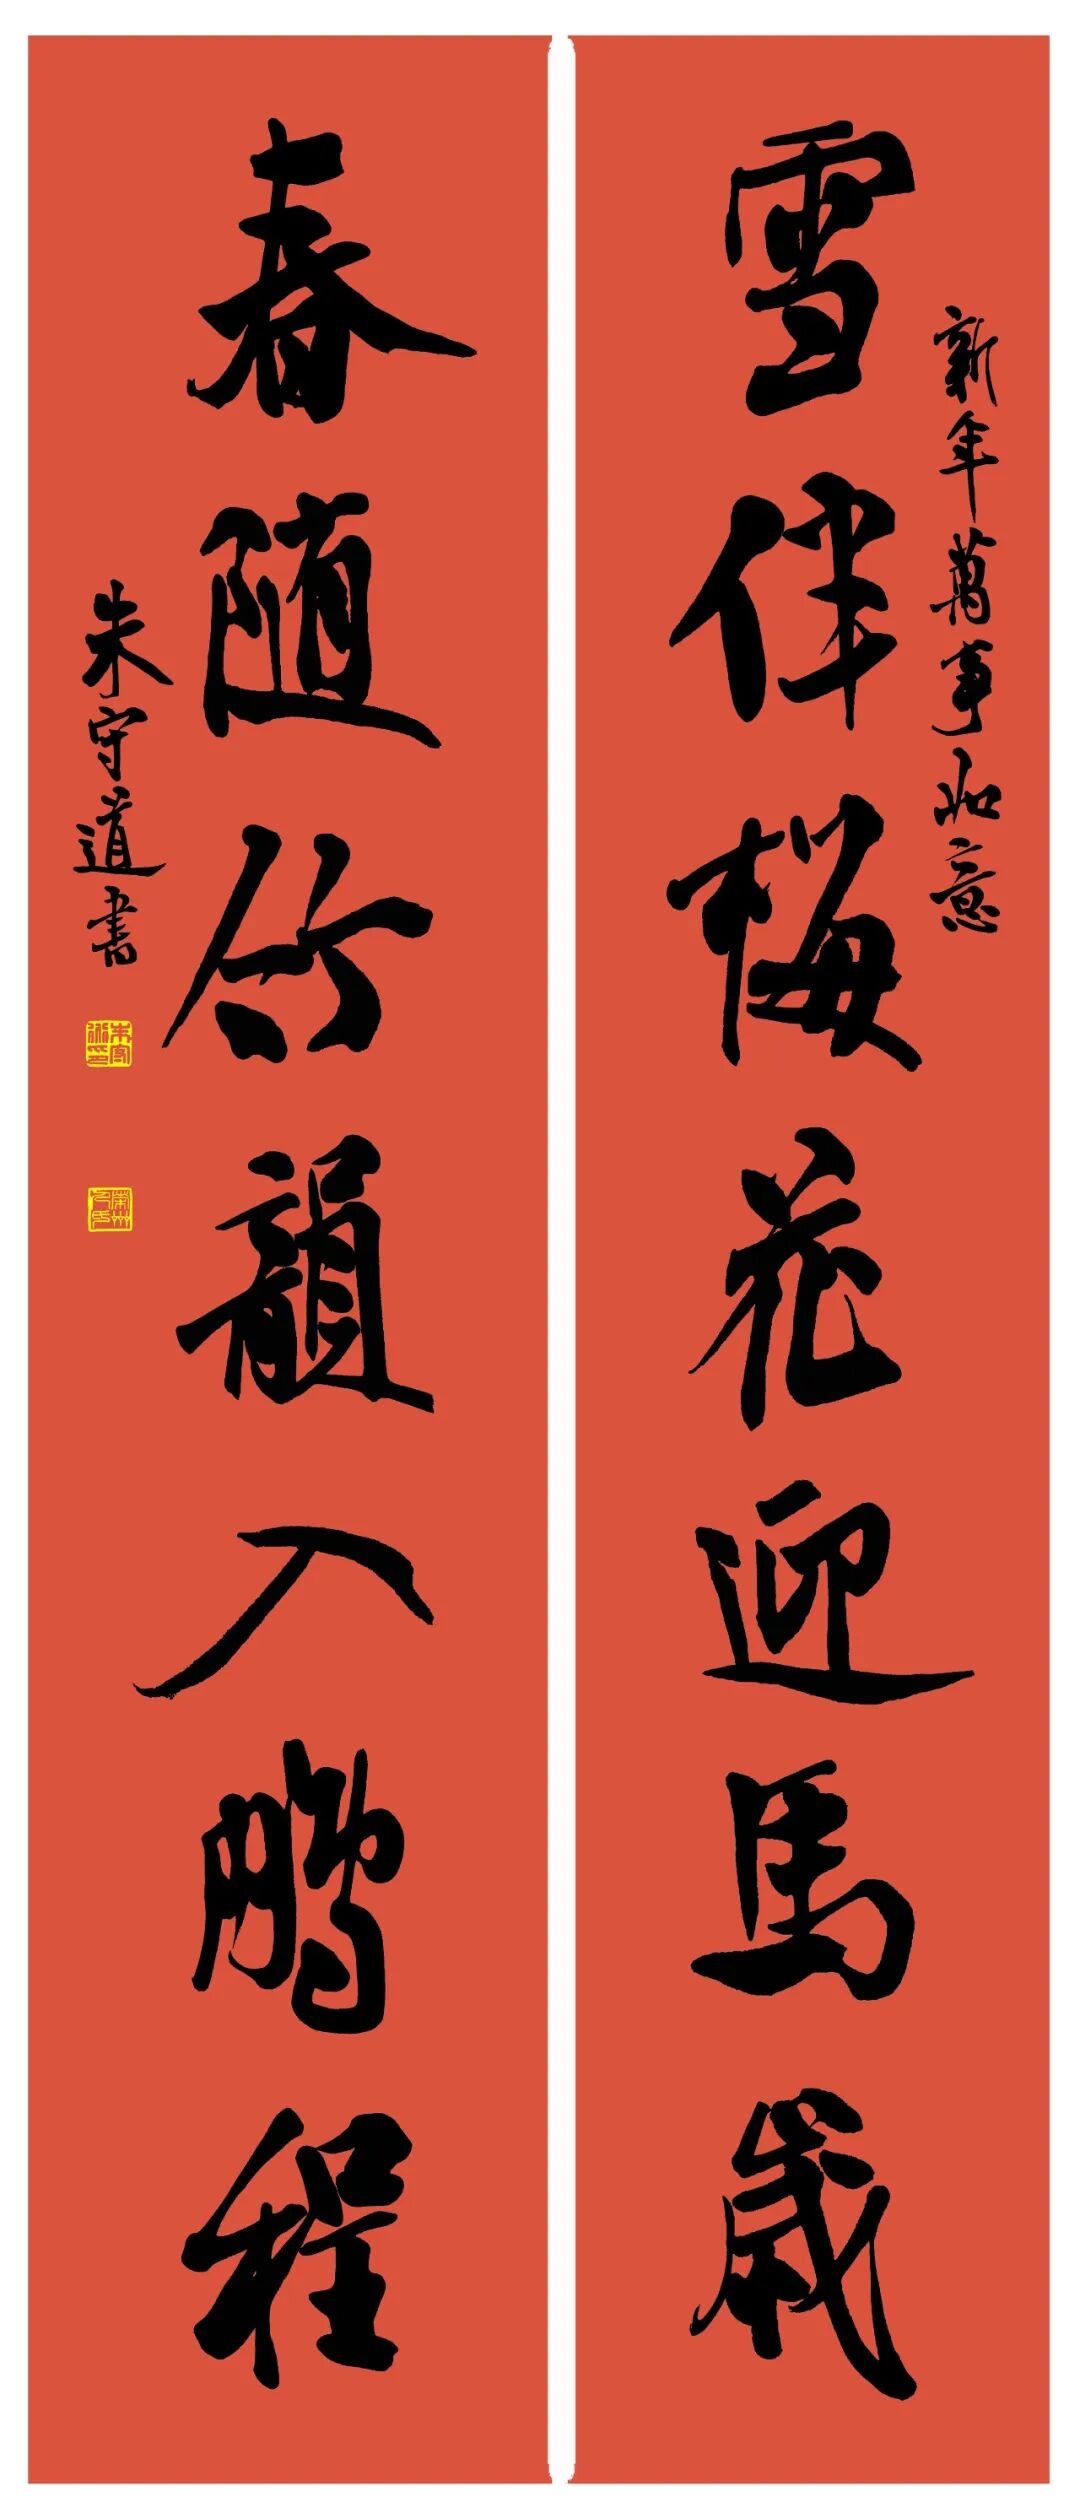 新年萬事如意
雪伴梅花迎馬歲
春隨竹韻入鵬程
朱守道書